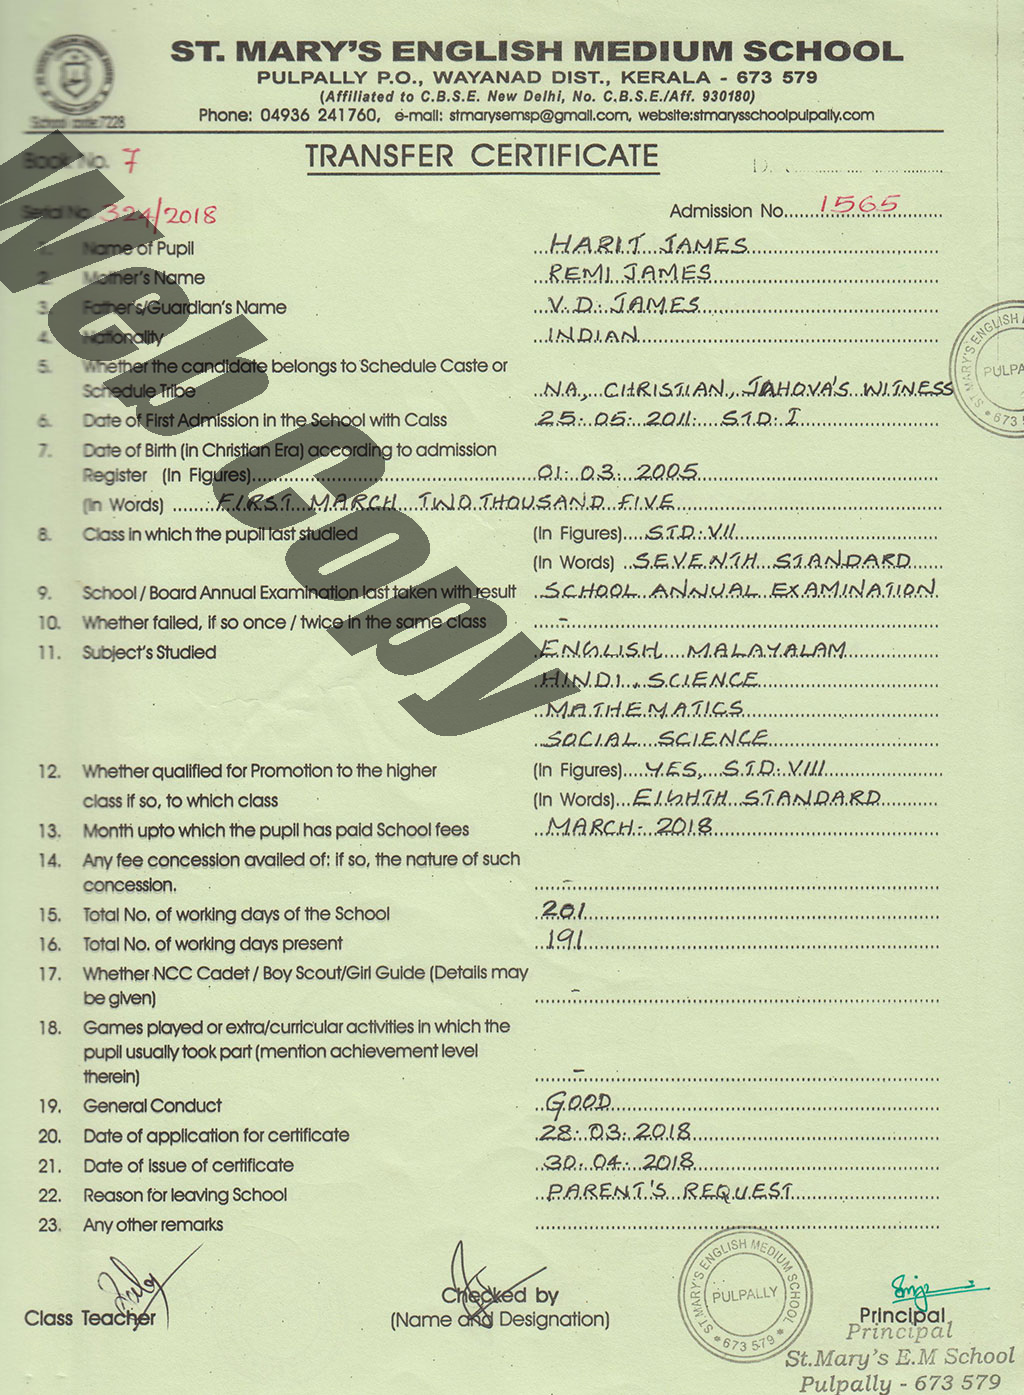 ST. MARY'S ENGLISH MEDIUM SCHOOL
PULPALLY P.O., WAYANAD DIST., KERALA - 673 579
(Affiliated to C.B.S.E. New Delhi, No. C.B.S.E./Aff. 930180)
School code:7228 Phone: 04936 241760, e-mail: stmarysemsp@gmail.com, website:stmarysschoolpulpally.com
Book No. 7 TRANSFER CERTIFICATE
Serial No. 324/2018 Admission No. 1565
1. Name of Pupil HARIT JAMES
2. Mother's Name REMI JAMES
3. Father's/Guardian's Name V.D. JAMES
4. Nationality INDIAN
5. Whether the candidate belongs to Schedule Caste or
Schedule Tribe NA, CHRISTIAN, JAHOVA'S WITNESS
6. Date of First Admission in the School with Calss 25.05.2011. STD. I
7. Date of Birth (in Christian Era) according to admission
Register (In Figures) 01.03.2005
(In Words) FIRST MARCH TWO THOUSAND FIVE
8. Class in which the pupil last studied (In Figures) STD. VII
(In Words) SEVENTH STANDARD
9. School / Board Annual Examination last taken with result SCHOOL ANNUAL EXAMINATION
10. Whether failed, if so once / twice in the same class -
11. Subject's Studied ENGLISH MALAYALAM
HINDI, SCIENCE
MATHEMATICS
SOCIAL SCIENCE
12. Whether qualified for Promotion to the higher (In Figures) YES, STD. VIII
class if so, to which class (In Words) EIGHTH STANDARD
13. Month upto which the pupil has paid School fees MARCH- 2018
14. Any fee concession availed of: if so, the nature of such
concession. -
15. Total No. of working days of the School 201
16. Total No. of working days present 191
17. Whether NCC Cadet / Boy Scout/Girl Guide (Details may
be given) -
18. Games played or extra/curricular activities in which the
pupil usually took part (mention achievement level
therein) -
19. General Conduct GOOD
20. Date of application for certificate 28.03.2018
21. Date of issue of certificate 30.04.2018
22. Reason for leaving School PARENT'S REQUEST
23. Any other remarks
Class Teacher Checked by Principal
(Name and Designation)
Principal
St.Mary's E.M School
Pulpally - 673 579
ST. MARY'S ENGLISH MEDIUM SCHOOL
PULPALLY
* 673 579 *
Web Copy